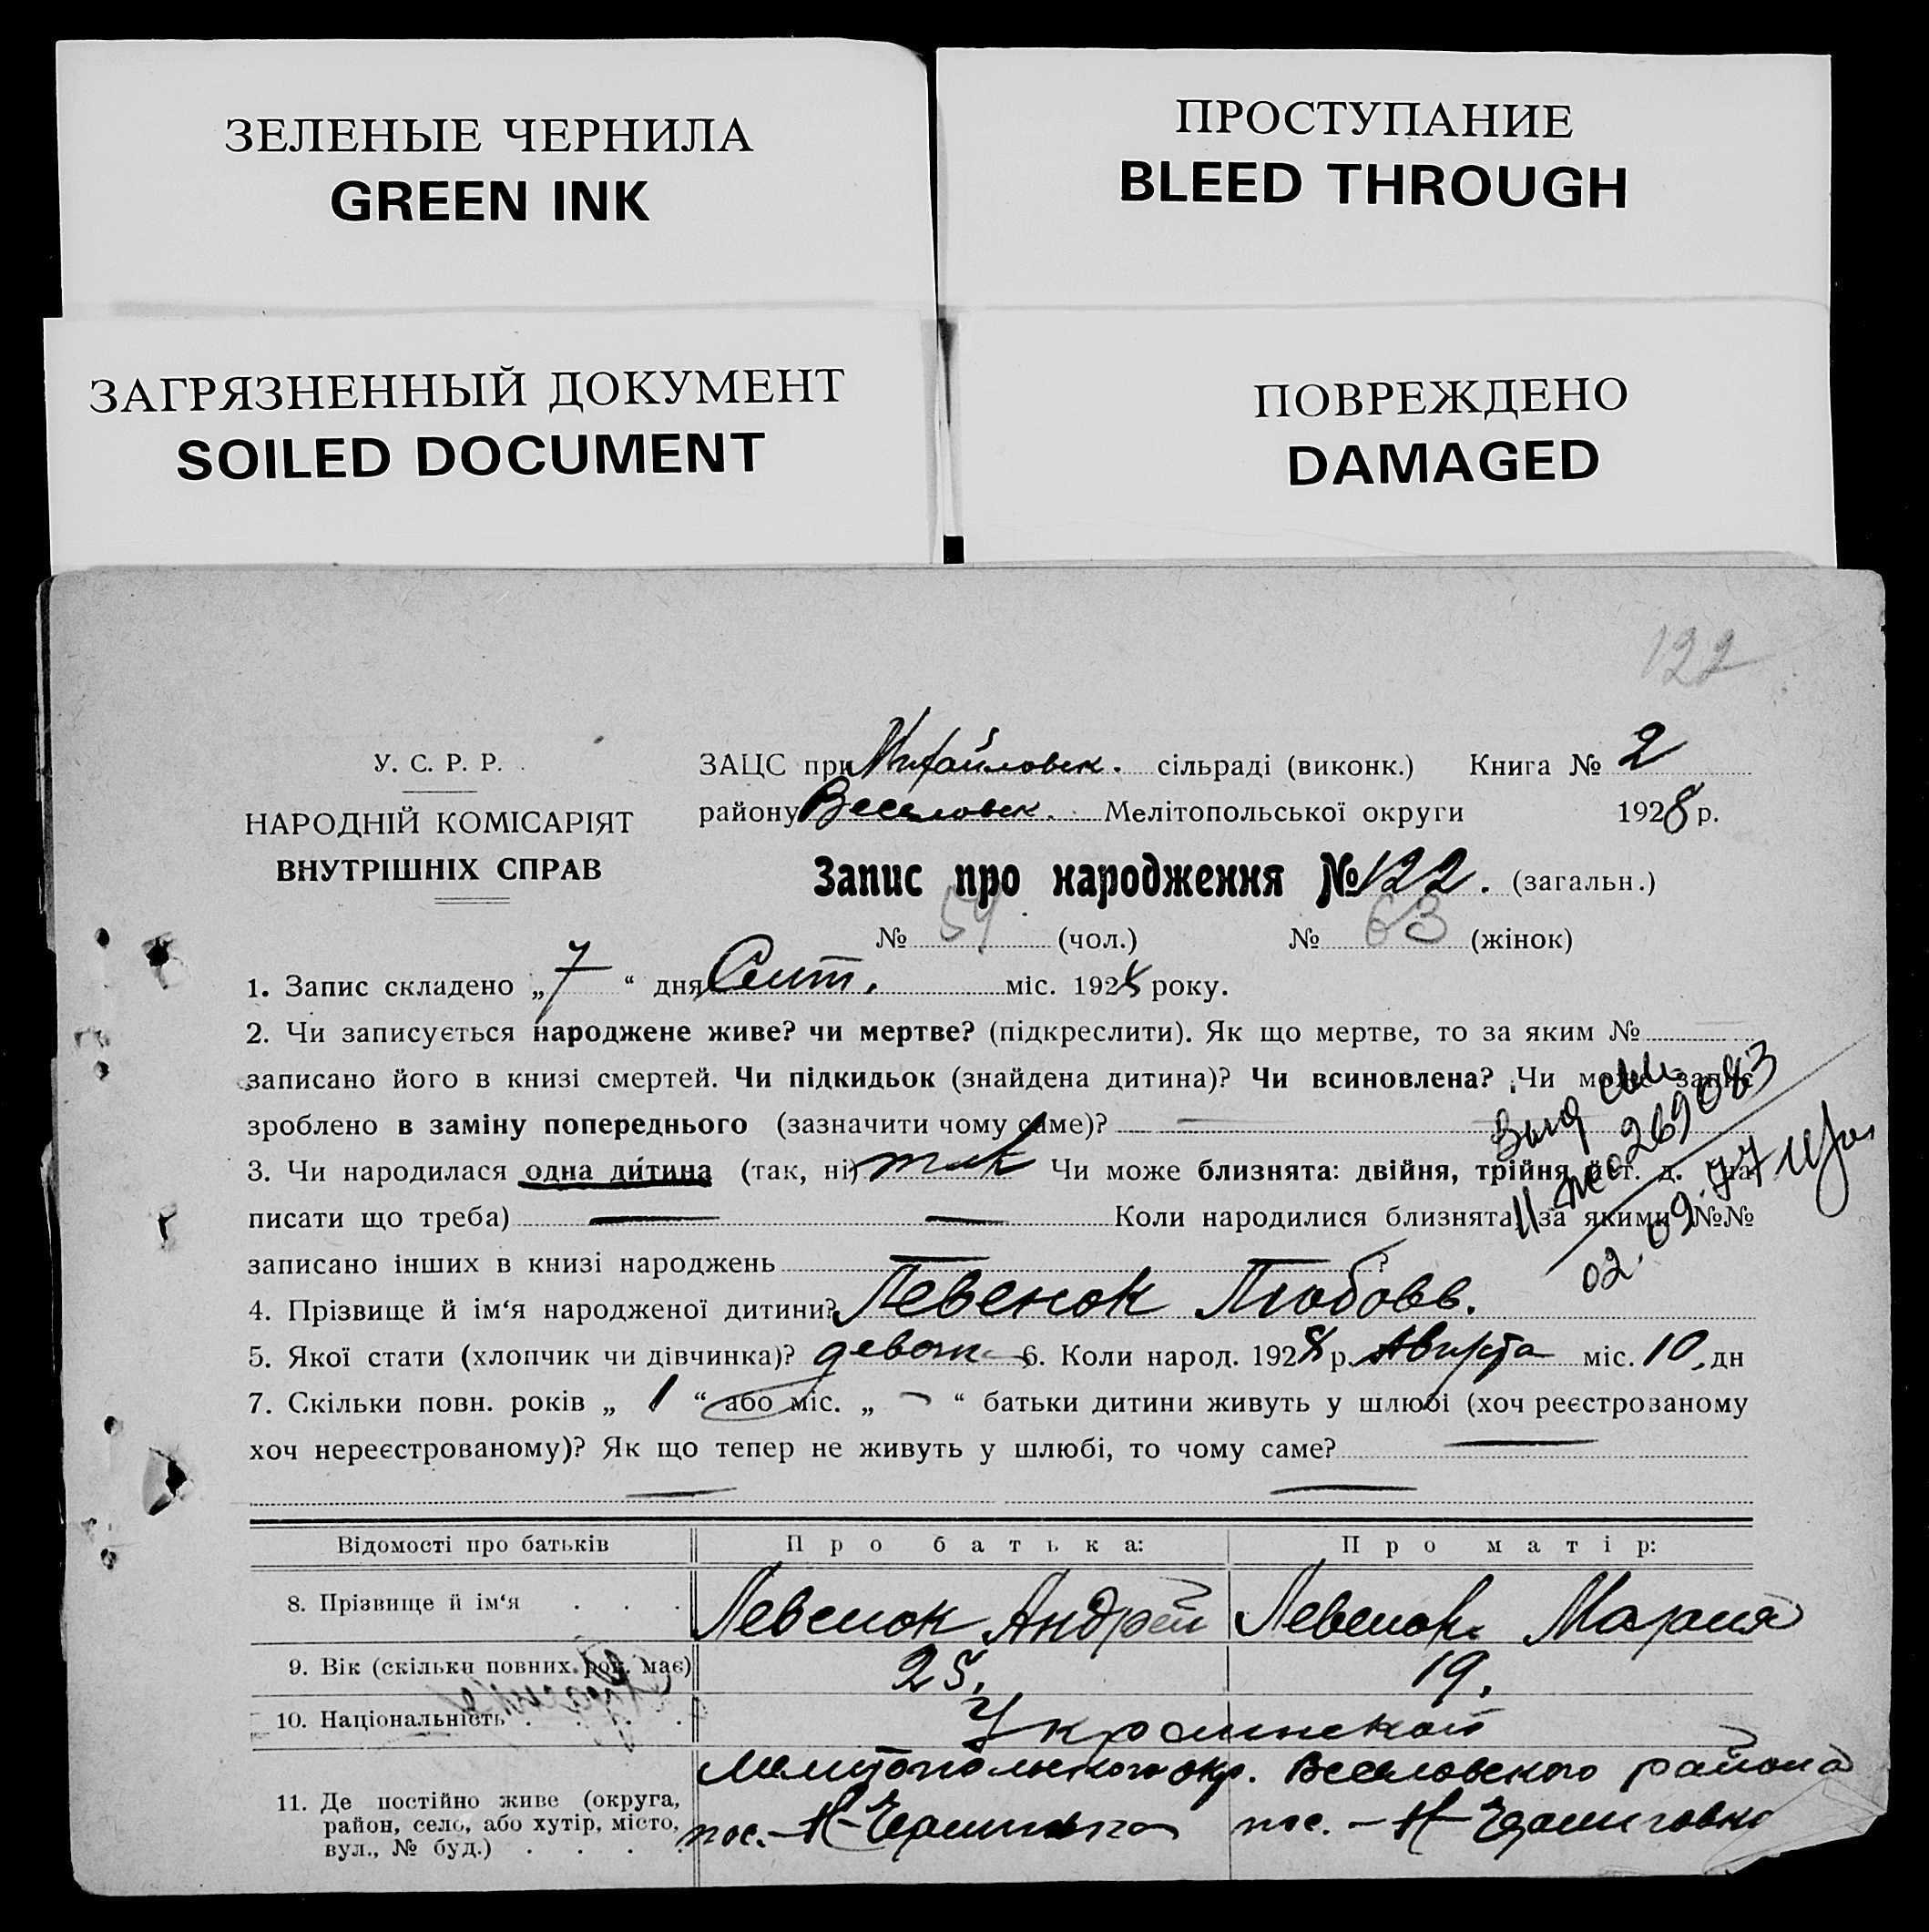 ЗЕЛЕНЫЕ ЧЕРНИЛА
GREEN INK
ПРОСТУПАНИЕ
BLEED THROUGH
ЗАГРЯЗНЕННЫЙ ДОКУМЕНТ
SOILED DOCUMENT
ПОВРЕЖДЕНО
DAMAGED
122
У. С. Р. Р.
НАРОДНІЙ КОМІСАРІЯТ
ВНУТРІШНІХ СПРАВ
ЗАЦС при Михайловск. сільраді (виконк.) Книга № 2
району Веселовск. Мелітопольської округи 1928 р.
Запис про народження № 122. (загальн.)
№ 59 (чол.) № 63 (жінок)
1. Запис складено „7“ дня Сент. міс. 1928 року.
2. Чи записується народжене живе? чи мертве? (підкреслити). Як що мертве, то за яким №
записано його в книзі смертей. Чи підкидьок (знайдена дитина)? Чи всиновлена? Чи може запис
зроблено в заміну попереднього (зазначити чому саме)? —
3. Чи народилася одна дитина (так, ні) так Чи може близнята: двійня, трійня й т. д. (на-
писати що треба) — — Коли народилися близнята, за якими №№
записано інших в книзі народжень — ?
02.09.77
4. Прізвище й ім‘я народженої дитини? Левенок Любовь.
5. Якої стати (хлопчик чи дівчинка)? девочк 6. Коли народ. 1928 р. Августа міс. 10, дн
7. Скільки повн. років „ 1 “ або міс. „ - “ батьки дитини живуть у шлюбі (хоч реєстрованому
хоч нереєстрованому)? Як що тепер не живуть у шлюбі, то чому саме? —
— —
Відомості про батьків Про батька: Про матір:
8. Прізвище й ім‘я . . . Левенок Андрей Левенок Мария
9. Вік (скільки повних рок. має) 25, 19,
10. Національність . . . . Украинской
Мелитопольского окр. Веселовского района
11. Де постійно живе (округа,
район, село, або хутір, місто,
вул., № буд.) . . . .
пос. - Н- пос. - Н-